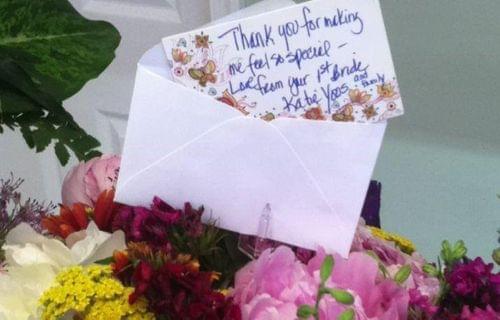 Thank you for making
me feel so special –
Love from your 1st Bride
Katie Voos and
family